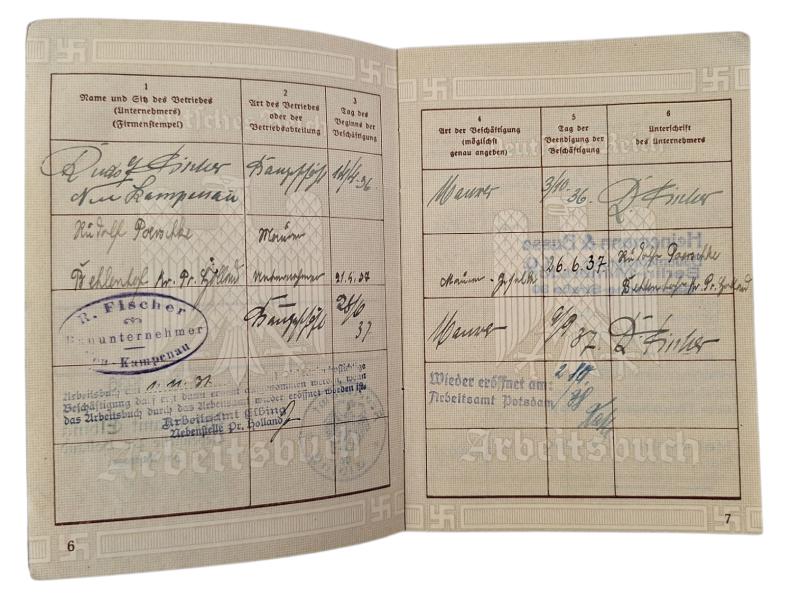 1
Name und Sitz des Betriebes
(Unternehmers)
(Firmenstempel)
2
Art des Betriebes
oder der
Betriebsabteilung
3
Tag des
Beginns der
Beschäftigung
Rudolf Fischer
Neu Kampenau
14/4. 36
Rudolf Poerschke
Maurer
Behlenhof Kr. Pr. Holland
Unternehmer
21.4.37
R. Fischer
Bauunternehmer
Neu-Kampenau
28/6
37
Arbeitsbuch am 1. 11. 37.
Beschäftigung darf erst dann ermit aufgenommen werden, wenn
das Arbeitsbuch durch das Arbeitsamt wieder eröffnet worden ist.
Arbeitsamt Elbing
Nebenstelle Pr. Holland
Arbeitsbuch
6
4
Art der Beschäftigung
(möglichst
genau angeben)
5
Tag der
Beendigung der
Beschäftigung
6
Unterschrift
des Unternehmers
Maurer
3/10. 36.
R. Fischer
Heinemann & Busse
Maurer-Geselle
26.6.37
Rudolf Poerschke
Behlenhof Kr. Pr. Holland
Maurer
9/9 37.
R. Fischer
Wieder eröffnet am:
Arbeitsamt Potsdam
Arbeitsbuch
7